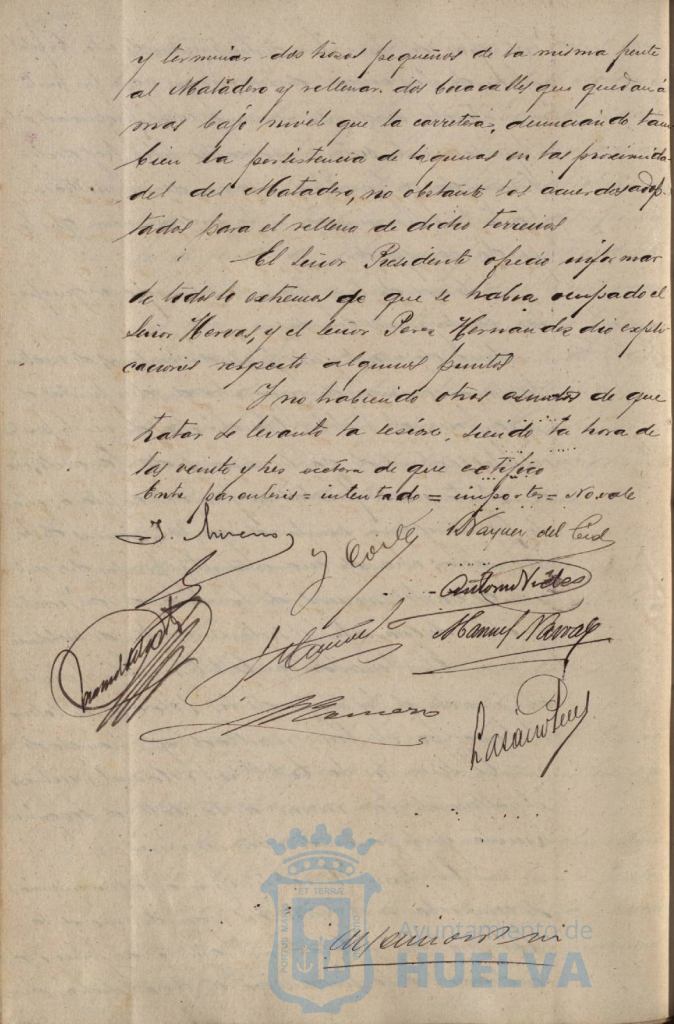 y terminar dos trozos pequeños de la misma frente
al Matadero y rellenar dos bocacalles que quedan á
mas bajo nivel que la carretera, denunciando tam
bien la persistencia de lagunas en las proximida
des del Matadero, no obstante los acuerdos adop-
tados para el relleno de dichos terrenos
El señor Presidente ofreció informar
de todos lo extremos de que se habia ocupado el
señor Hervas, y el señor Perez Hernandez dió expli
caciones respecto algunos puntos
Y no habiendo otros asuntos de que
tratar se levantó la sesion, siendo la hora de
las veinte y tres de que certifico
Entre parentesis = intentado = importes = No vale
J. Moreno
Vazquez del Cid
Manuel Narva
ET TERRÆ
Ayuntamiento de
HUELVA